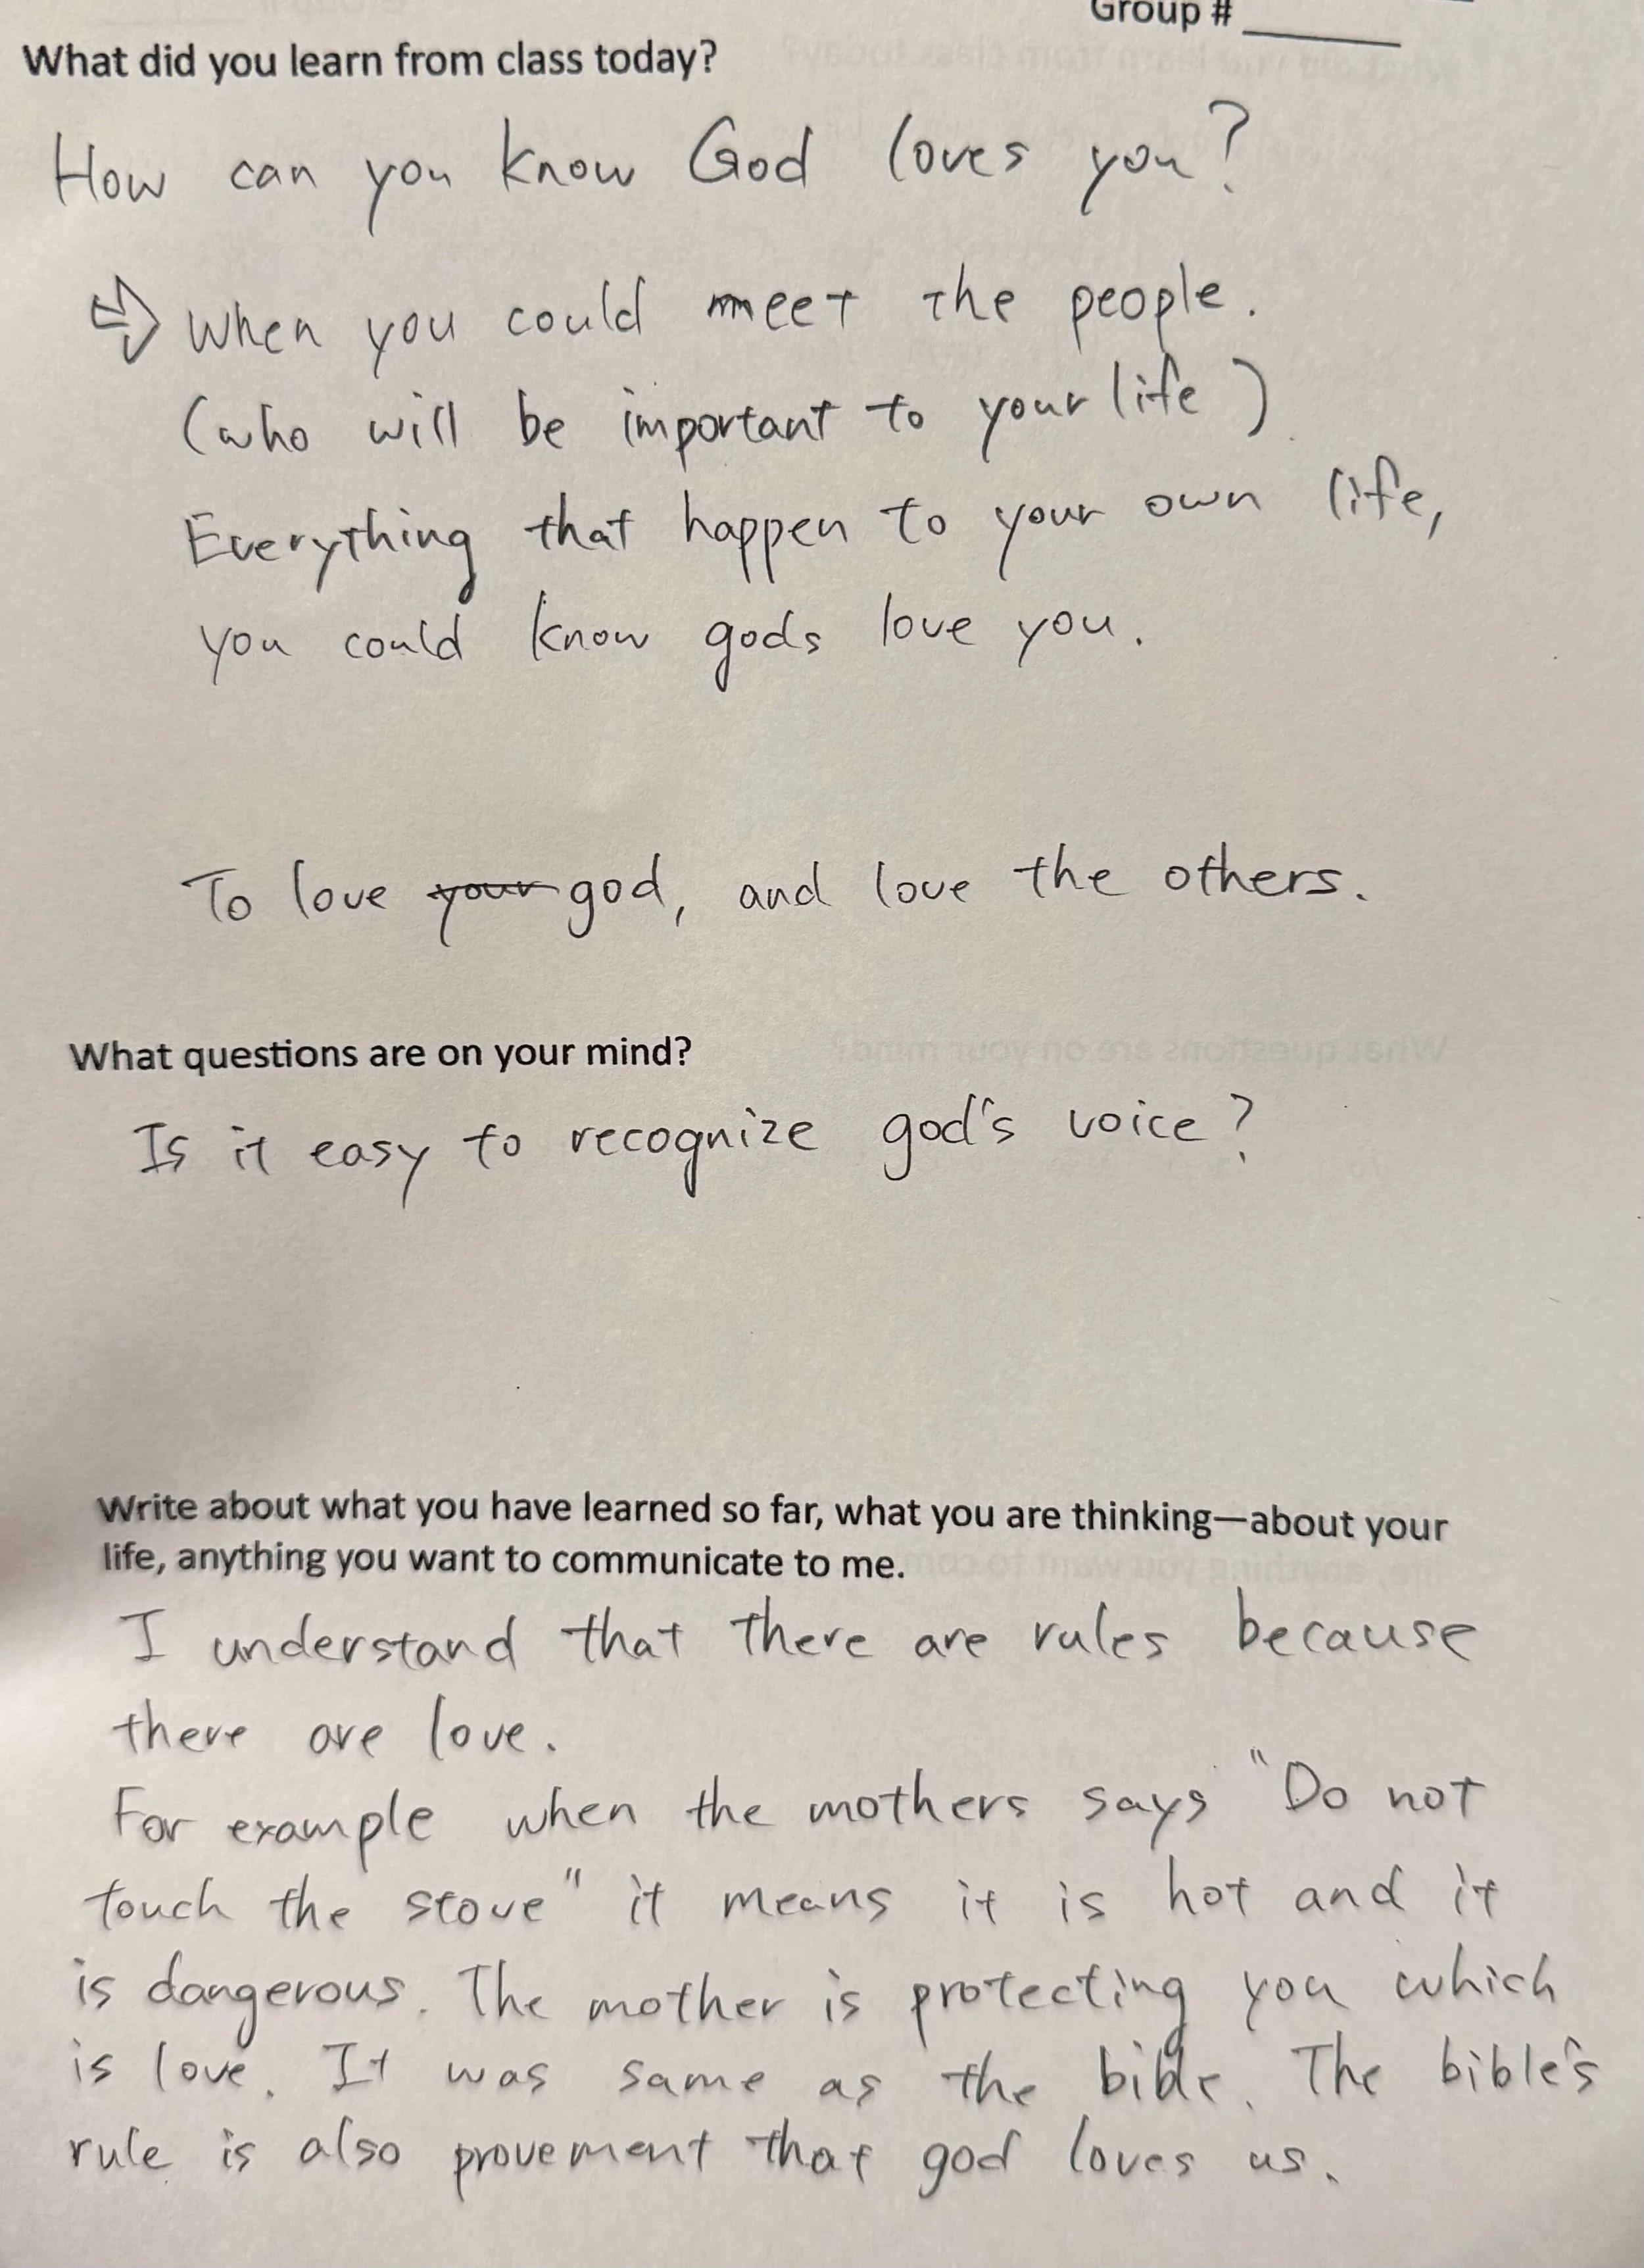 Group #
What did you learn from class today?
How can you know God loves you?
⇒ When you could meet the people.
(who will be important to your life)
Everything that happen to your own life,
you could know gods love you.
To love your god, and love the others.
What questions are on your mind?
Is it easy to recognize god's voice?
Write about what you have learned so far, what you are thinking—about your
life, anything you want to communicate to me.
I understand that there are rules because
there are love.
For example when the mothers says "Do not
touch the stove" it means it is hot and it
is dangerous. The mother is protecting you which
is love. It was same as the bible. The bible's
rule is also provement that god loves us.